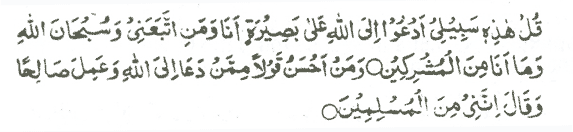 قُلْ هٰذِهٖ سَبِيْلِيْٓ اَدْعُوْا اِلَى اللّٰهِ عَلٰى بَصِيْرَةٍ اَنَا وَمَنِ اتَّبَعَنِيْ وَسُبْحَانَ اللّٰهِ
وَمَا اَنَا مِنَ الْمُشْرِكِيْنَ○ وَمَنْ اَحْسَنُ قَوْلًا مِّمَّنْ دَعَا اِلَى اللّٰهِ وَعَمِلَ صَالِحًا
وَقَالَ اِنَّنِيْ مِنَ الْمُسْلِمِيْنَ○